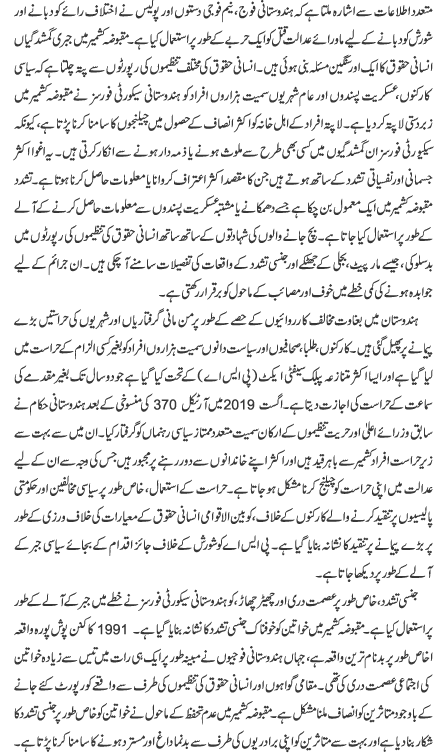 متعدد اطلاعات سے اشارہ ملتا ہے کہ ہندوستانی فوج، نیم فوجی دستوں اور پولیس نے اختلاف رائے کو دبانے اور
شورش کو دبانے کے لیے ماورائے عدالت قتل کو ایک حربے کے طور پر استعمال کیا ہے۔ مقبوضہ کشمیر میں جبری گمشدگیاں
انسانی حقوق کا ایک اور سنگین مسئلہ بنی ہوئی ہیں۔ انسانی حقوق کی مختلف تنظیموں کی رپورٹوں سے پتہ چلتا ہے کہ سیاسی
کارکنوں، عسکریت پسندوں اور عام شہریوں سمیت ہزاروں افراد کو ہندوستانی سیکورٹی فورسز نے مقبوضہ کشمیر میں
زبردستی لاپتہ کر دیا ہے۔ لاپتہ افراد کے اہل خانہ کو اکثر انصاف کے حصول میں چیلنجوں کا سامنا کرنا پڑتا ہے، کیونکہ
سیکیورٹی فورسز ان گمشدگیوں میں کسی بھی طرح سے ملوث ہونے یا ذمہ دار ہونے سے انکار کرتی ہیں۔ یہ اغوا اکثر
جسمانی اور نفسیاتی تشدد کے ساتھ ہوتے ہیں جن کا مقصد اکثر اعتراف کروانا یا معلومات حاصل کرنا ہوتا ہے۔ تشدد
مقبوضہ کشمیر میں ایک معمول بن چکا ہے جسے دھمکانے یا مشتبہ عسکریت پسندوں سے معلومات حاصل کرنے کے آلے
کے طور پر استعمال کیا جاتا ہے۔ بچ جانے والوں کی شہادتوں کے ساتھ ساتھ انسانی حقوق کی تنظیموں کی رپورٹوں میں
بدسلوکی، جیسے مار پیٹ، بجلی کے جھٹکے اور جنسی تشدد کے واقعات کی تفصیلات سامنے آ چکی ہیں۔ ان جرائم کے لیے
جوابدہ ہونے کی کمی خطے میں خوف اور مصائب کے ماحول کو برقرار رکھتی ہے۔
ہندوستان میں بغاوت مخالف کارروائیوں کے حصے کے طور پر من مانی گرفتاریاں اور شہریوں کی حراستیں بڑے
پیمانے پر پھیل گئی ہیں۔ کارکنوں، طلبا، صحافیوں اور سیاست دانوں سمیت ہزاروں افراد کو بغیر کسی الزام کے حراست میں
لیا گیا ہے اور ایسا اکثر متنازعہ پبلک سیفٹی ایکٹ (پی ایس اے) کے تحت کیا گیا ہے جو دو سال تک بغیر مقدمے کی
سماعت کے حراست کی اجازت دیتا ہے۔ اگست 2019 میں آرٹیکل 370 کی منسوخی کے بعد ہندوستانی حکام نے
سابق وزرائے اعلیٰ اور حریت تنظیموں کے ارکان سمیت متعدد ممتاز سیاسی رہنماؤں کو گرفتار کیا۔ ان میں سے بہت سے
زیر حراست افراد کشمیر سے باہر قید ہیں اور اکثر اپنے خاندانوں سے دور رہنے پر مجبور ہیں جس کی وجہ سے ان کے لیے
عدالت میں اپنی حراست کو چیلنج کرنا مشکل ہو جاتا ہے۔ حراست کے استعمال، خاص طور پر سیاسی مخالفین اور حکومتی
پالیسیوں پر تنقید کرنے والے کارکنوں کے خلاف، کو بین الاقوامی انسانی حقوق کے معیارات کی خلاف ورزی کے طور
پر بڑے پیمانے پر تنقید کا نشانہ بنایا گیا ہے۔ پی ایس اے کو شورش کے خلاف جائز اقدام کے بجائے سیاسی جبر کے
آلے کے طور پر دیکھا جاتا ہے۔
جنسی تشدد، خاص طور پر عصمت دری اور چھیڑ چھاڑ، کو ہندوستانی سیکورٹی فورسز نے خطے میں جبر کے آلے کے طور
پر استعمال کیا ہے۔ مقبوضہ کشمیر میں خواتین کو خوفناک جنسی تشدد کا نشانہ بنایا گیا ہے۔ 1991 کا کنن پوش پورہ واقعہ
خاص طور پر بدنام ترین واقعہ ہے، جہاں ہندوستانی فوجیوں نے مبینہ طور پر ایک ہی رات میں تیس سے زیادہ خواتین
کی اجتماعی عصمت دری کی تھی۔ مقامی گواہوں اور انسانی حقوق کی تنظیموں کی طرف سے واقعے کو رپورٹ کئے جانے
کے باوجود متاثرین کو انصاف ملنا مشکل ہے۔ مقبوضہ کشمیر میں عدم تحفظ کے ماحول نے خواتین کو خاص طور پر جنسی تشدد کا
شکار بنا دیا ہے اور بہت سے متاثرین کو اپنی برادریوں کی طرف سے بدنما داغ اور مسترد ہونے کا سامنا کرنا پڑتا ہے۔